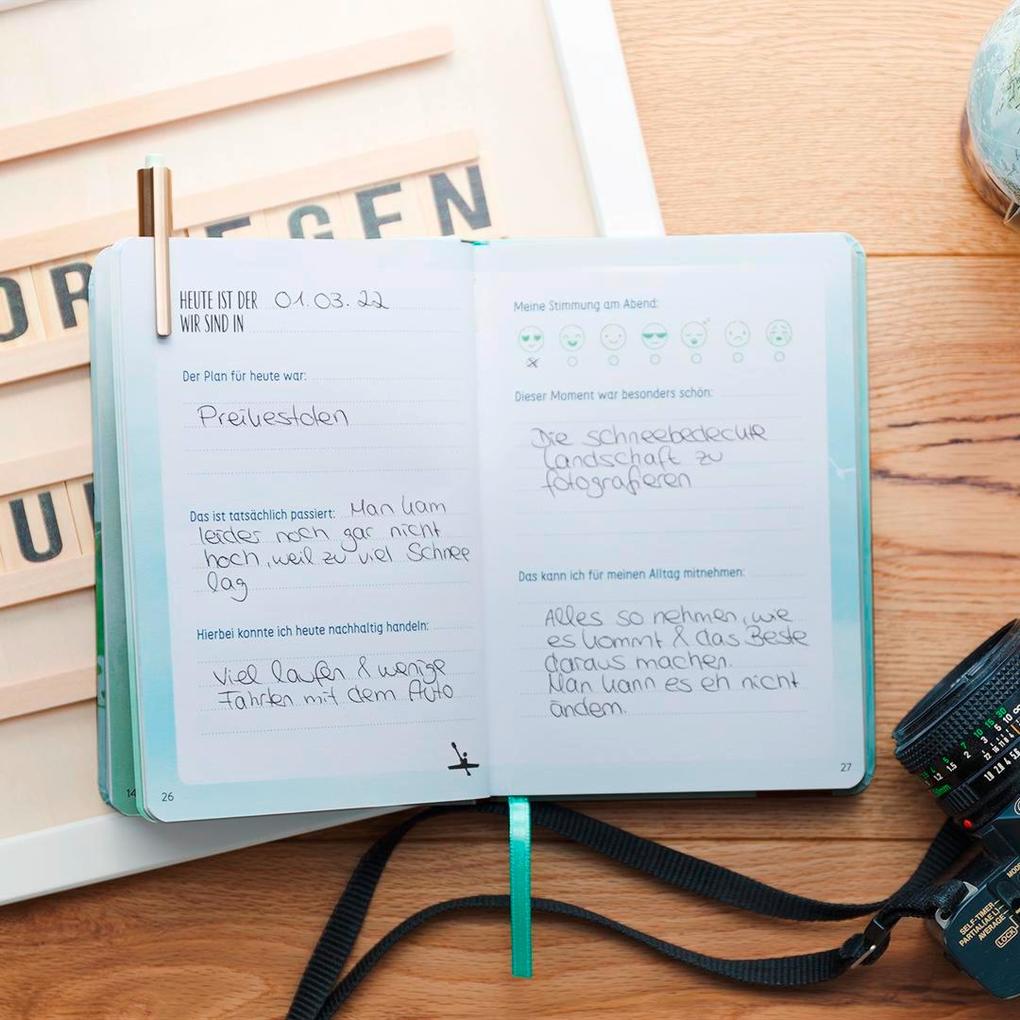 OR EGEN
U
HEUTE IST DER 01.03.22
WIR SIND IN
Der Plan für heute war:
Preikestolen
Das ist tatsächlich passiert: Man kam
leider noch gar nicht
hoch, weil zu viel Schnee
lag
Hierbei konnte ich heute nachhaltig handeln:
Viel laufen & wenige
Fahrten mit dem Auto
14
26
Meine Stimmung am Abend:
Dieser Moment war besonders schön:
Die schneebedeckte
Landschaft zu
fotografieren
Das kann ich für meinen Alltag mitnehmen:
Alles so nehmen, wie
es kommt & das Beste
daraus machen.
Man kann es eh nicht
ändern.
27
SELF-TIMER
PARTIAL(AE L)
AVERAGE
LOCK